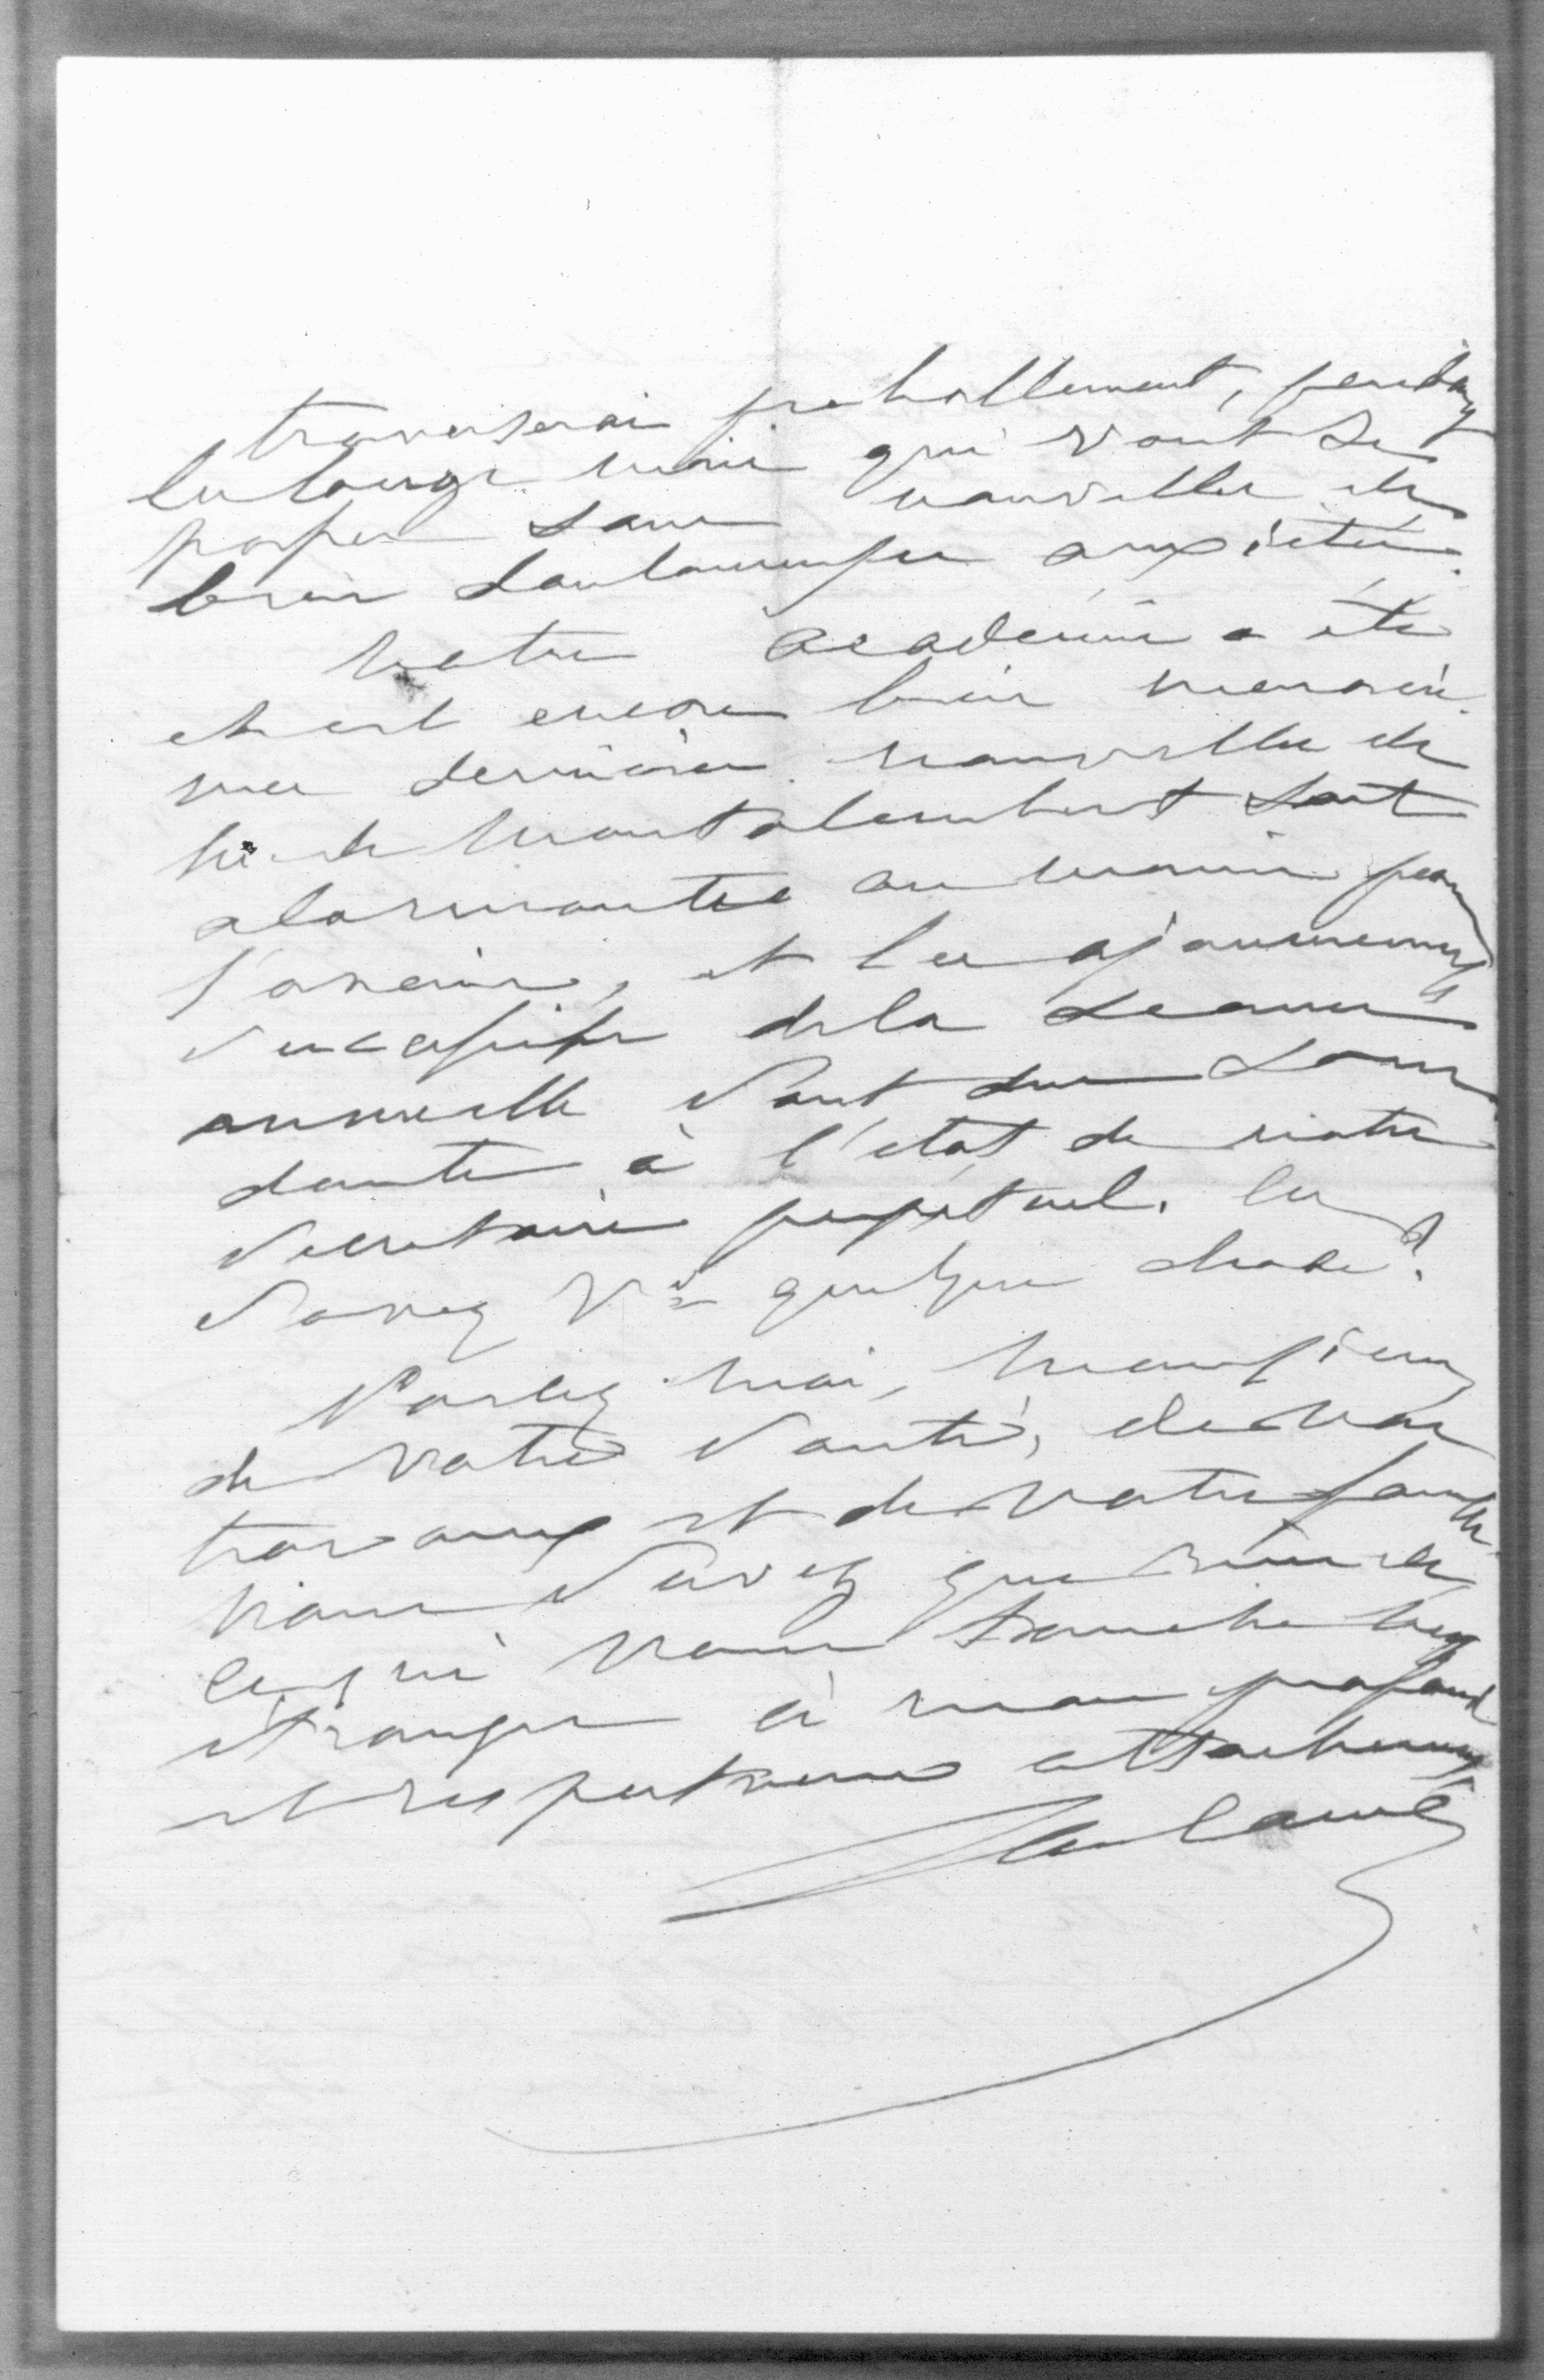 traverserai probablement, pendant
les longs mois qui vont se
passer sans nouvelles de
bien douloureuses anxiétés.
Notre académie a été
et est encore bien menacée.
mes dernières nouvelles de
Mr. de Montalembert sont
alarmantes au moins pour
l'avenir, et les ajournements
successifs de la séance
annuelle sont dus sans
doute à l'état de notre
secrétaire perpétuel. en
savez Vs quelque chose?
Parlez moi, Monsieur,
de votre santé, de vos
travaux et de votre famille.
Vous savez que rien de
ce qui vous touche n'est
étranger à mon profond
et respectueux attachement